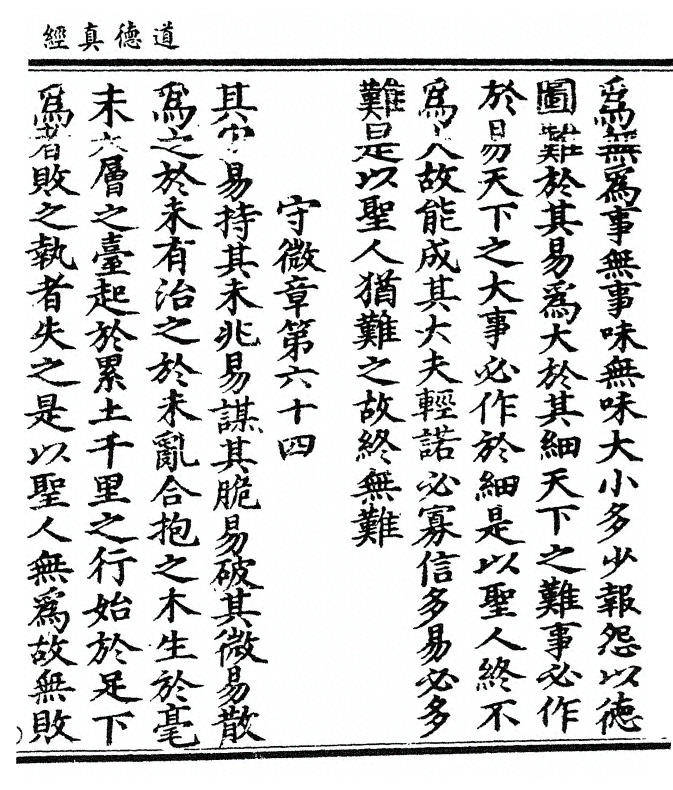 道德真經
爲無爲事無事味無味大小多少報怨以德
圖難於其易爲大於其細天下之難事必作
於易天下之大事必作於細是以聖人終不
爲大故能成其大夫輕諾必寡信多易必多
難是以聖人猶難之故終無難
守微章第六十四
其安易持其未兆易謀其脆易破其微易散
爲之於未有治之於未亂合抱之木生於毫
末九層之臺起於累土千里之行始於足下
爲者敗之執者失之是以聖人無爲故無敗